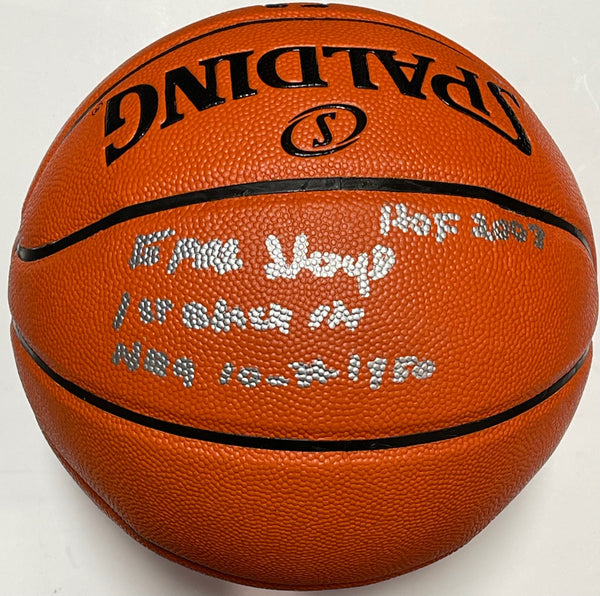 SPALDING
S
HOF 2003
Earl Lloyd
1st Black in
NBA 10-31-1950